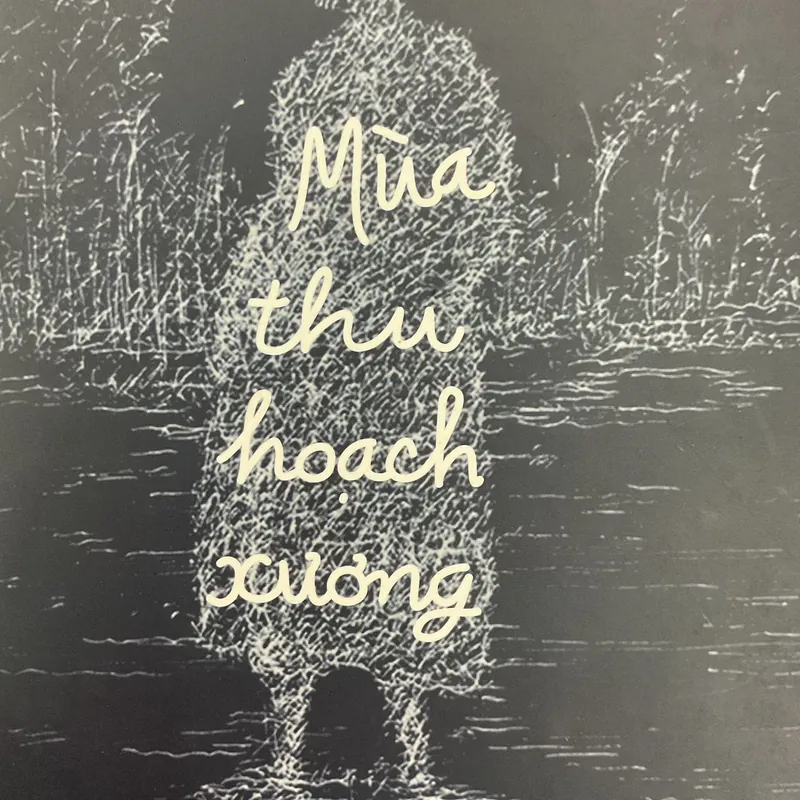 Mùa
thu
hoạch
xương